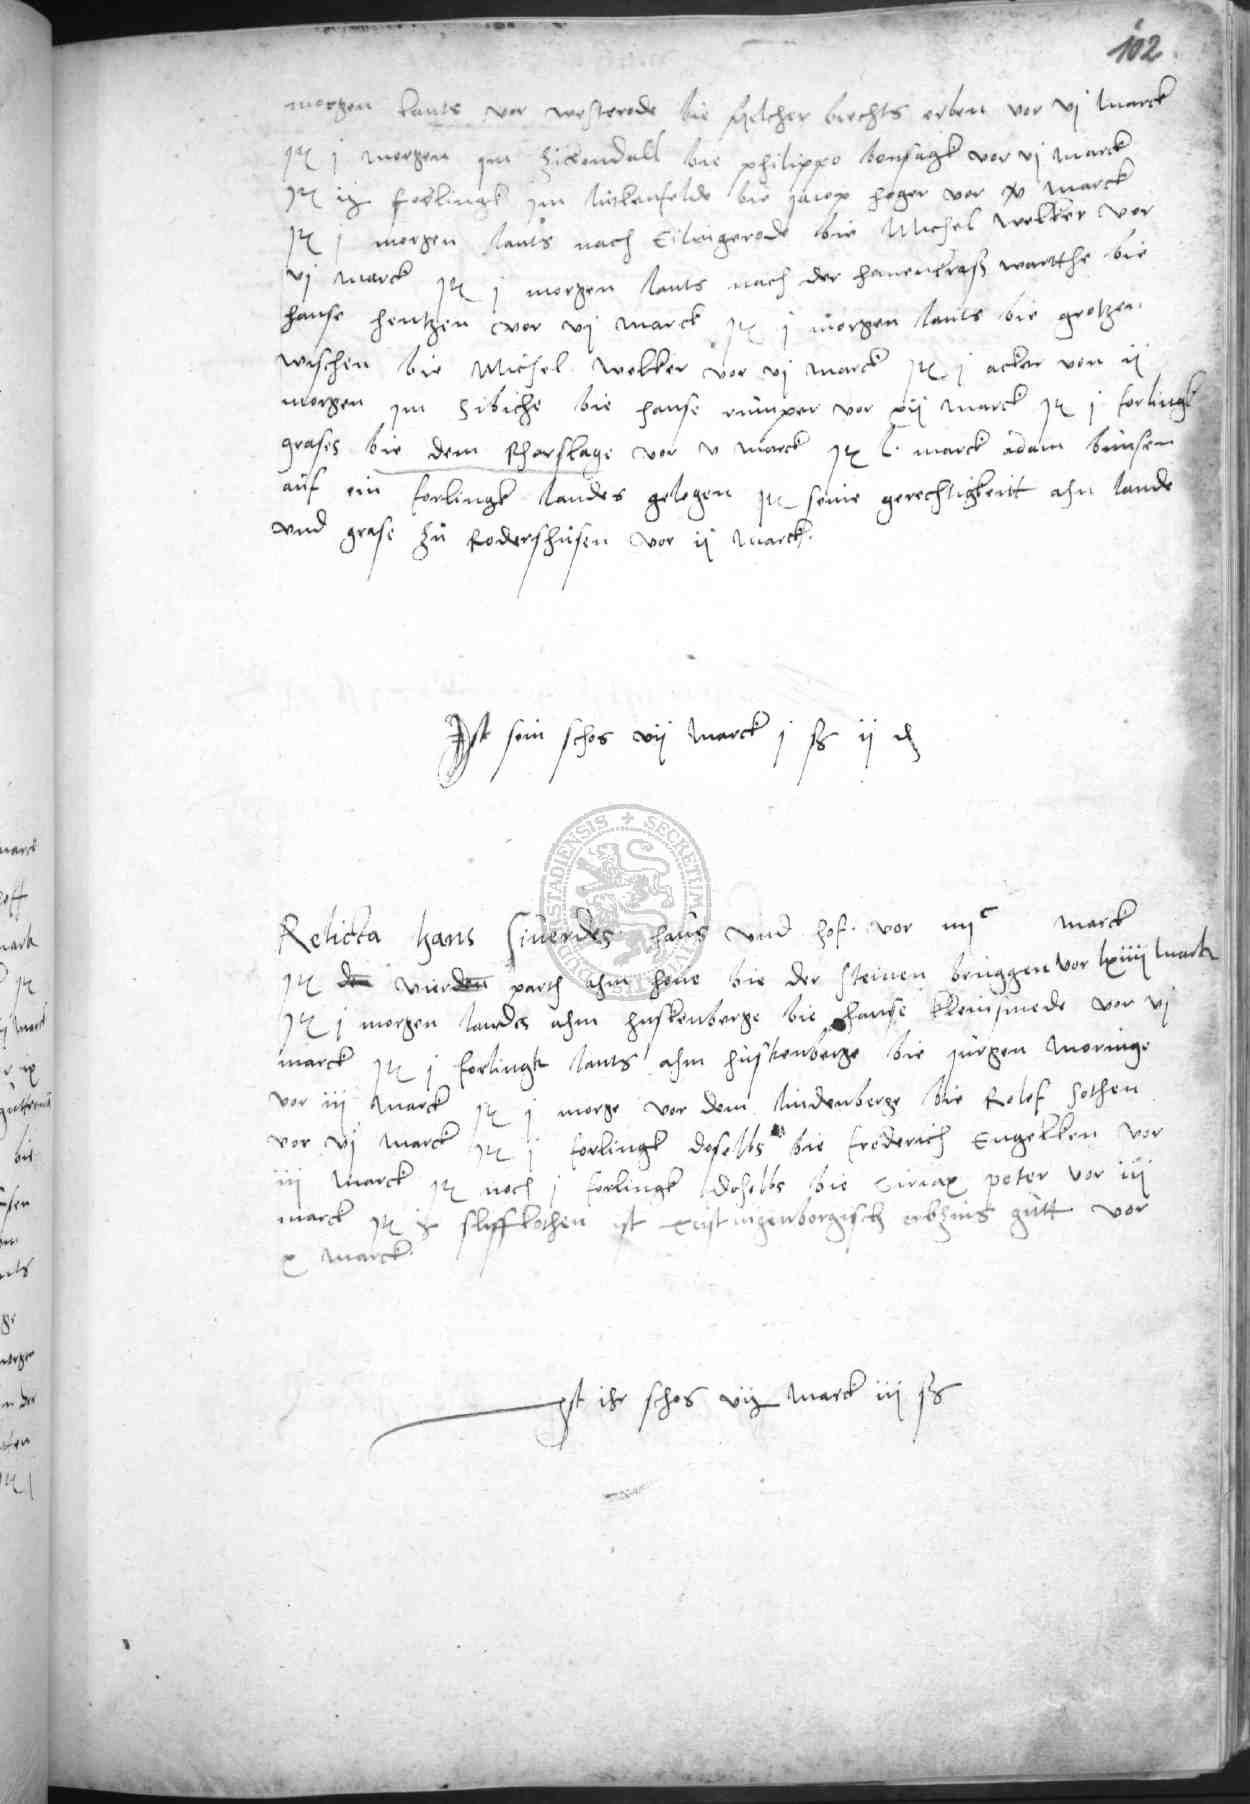 102
morgen lants vor westerode bie hilcher brechts erben vor vj marck
It j morgen im hickendall bie philippo bensagk vor vj marck
It ij forlingk im luckenfelde bie jacop heger vor x marck
It j morgen lants nach Eilwigerode bie Michel welkker vor
vj marck It j morgen lants nach der hanenkraß wartthe bie
hanse hentzen vor vj marck It j morgen lants bie grotzen
wischen bie Michel welkker vor vj marck It j acker von ij
morgen im sibiche bie hanse rumper vor xij marck It j forlingk
grases bie dem Rhorslage vor v marck It l marck adam bunsen
auf ein forlingk landes gelegen It seine gerechtigkeitt ahn lande
und grase zu Rodershusen vor ij marck
Ist sein schos vij marck j ß ij d
Relicta hans Siuerdes haus und hof vor iiij c marck
It den vierden parth ahm houe bie der steinen bruggen vor lxiiij mark
It j morgen landes ahm huskenberge bie hanse kleinsmede vor vj
marck It j forlingk lants ahm huskenberge bie jurgen Moringe
vor iij marck It j morge vor dem lindenberge bie Rolof Hothen
vor vj marck It j forlingk doselbs bie frederich Engelken vor
iij marck It noch j forlingk doselbs bie Ciriax peter vor iij
marck It slifkothen ist erbzins gutt vor
x marck
Ist ihr schos vij marck iij ß